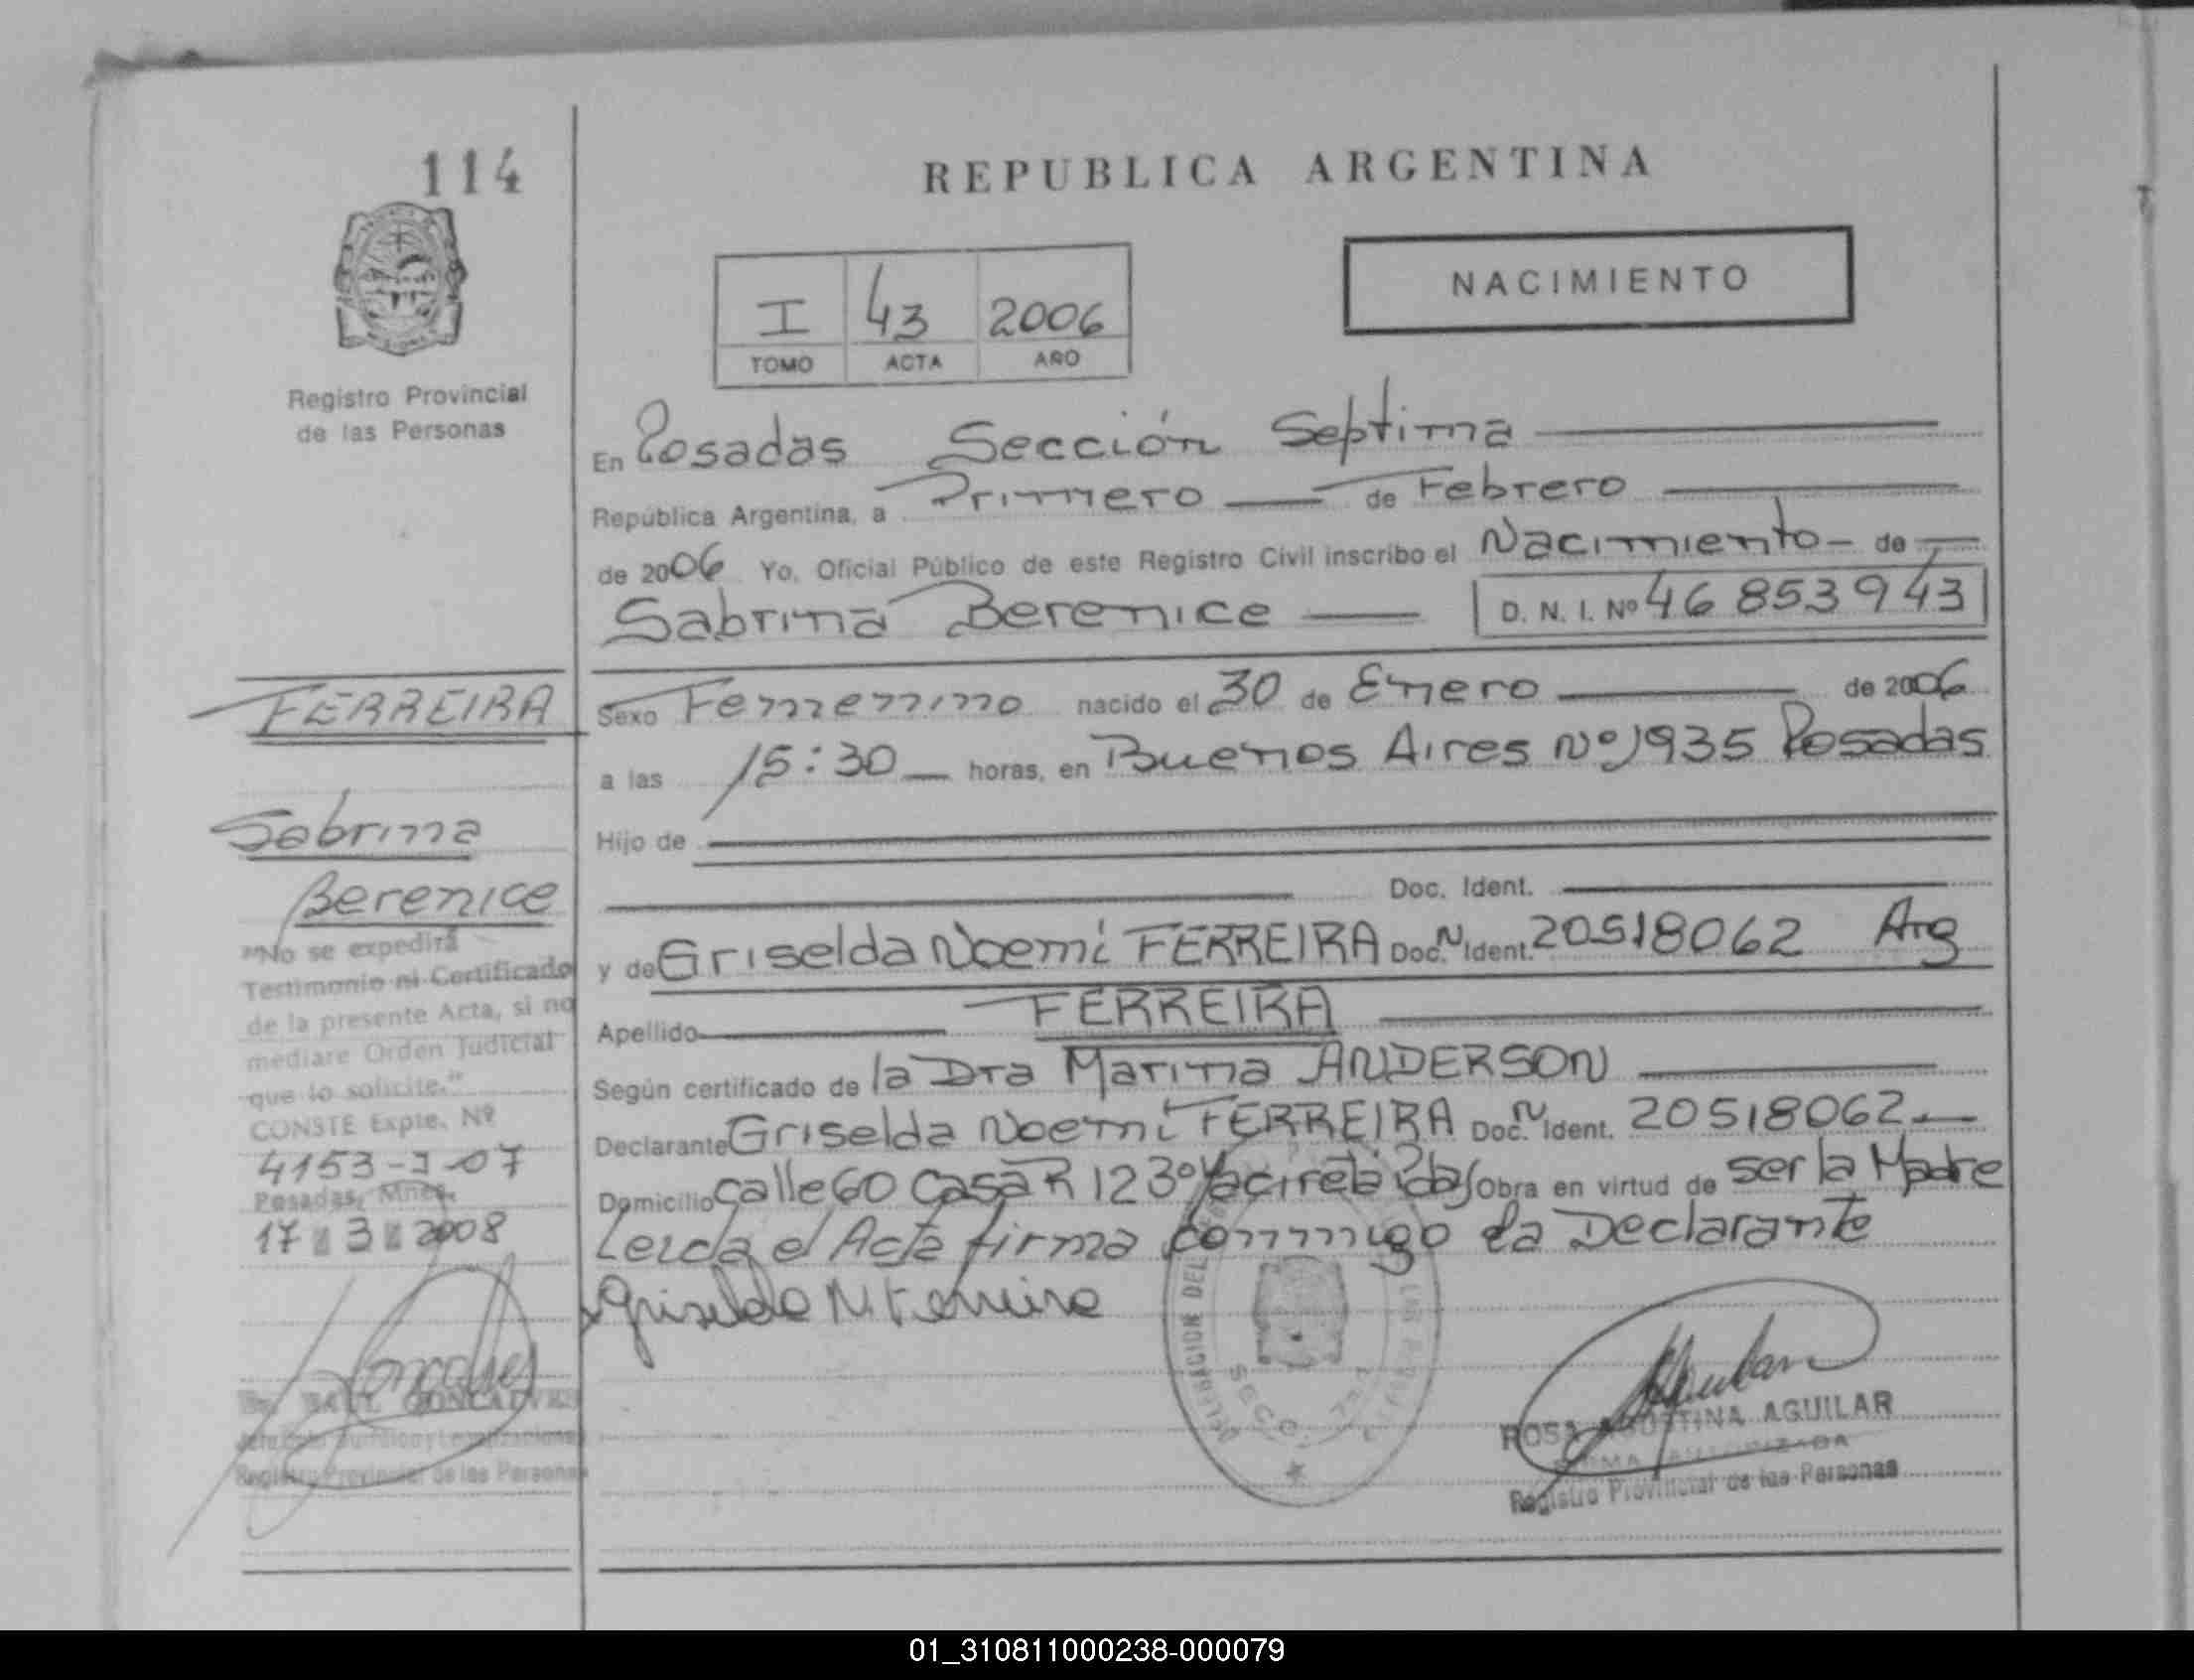 114
REPUBLICA ARGENTINA
NACIMIENTO
I 43 2006
TOMO ACTA AÑO
Registro Provincial
de las Personas
En Posadas Sección Septima
República Argentina, a Primero de Febrero
de 2006 Yo, Oficial Público de este Registro Civil inscribo el Nacimiento - de
Sabrina Berenice D. N. I. Nº 46 853 943
FERREIRA
Sabrina
Berenice
"No se expedirá
Testimonio ni Certificado
de la presente Acta, si no
mediare Orden Judicial
que lo solicite."
CONSTE Expte. Nº
4153-I-07
Posadas, Mnes.
17 3 2008
Dr. RAUL GONCALVES
Registro Provincial de las Personas
Sexo Femenino nacido el 30 de Enero de 2006
a las 15:30 horas, en Buenos Aires Nº 1935 Posadas
Hijo de
Doc. Ident.
y de Griselda Noemí FERREIRA Doc. N Ident. 20518062 Arg
Apellido FERREIRA
Según certificado de la Dra Marina ANDERSON
Declarante Griselda Noemí FERREIRA Doc. N Ident. 20518062
Domicilio calle 60 casa R 123º Yaciretá Pdas Obra en virtud de ser la Madre
Leida el Acta firma conmigo la Declarante
Griselda N. Ferreira
DELEGACION DEL
SECC.
ROSA AGUSTINA AGUILAR
FIRMA AUTORIZADA
Registro Provincial de las Personas
01_310811000238-000079